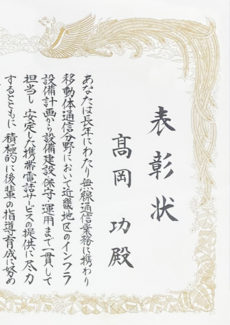 表彰状
髙岡 功 殿
あなたは長年にわたり無線通信業務に携わり
移動体通信分野において近畿地区のインフラ
設備計画から設備建設、保守、運用まで一貫して
担当し、安定した携帯電話サービスの提供に尽力
するとともに、積極的に後輩の指導、育成に努め